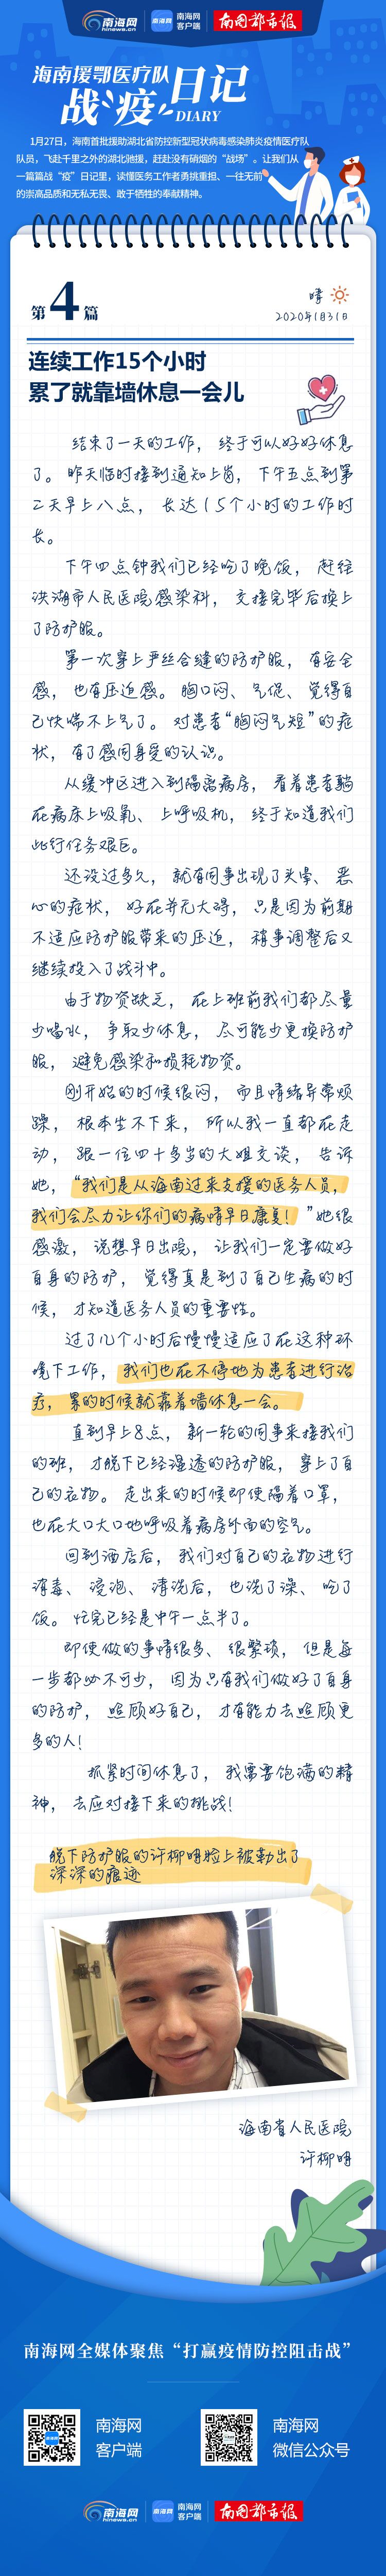 南海网
hinews.cn
南海网
客户端
南国都市报
海南援鄂医疗队
战“疫”日记
DIARY
1月27日，海南首批援助湖北省防控新型冠状病毒感染肺炎疫情医疗队
队员，飞赴千里之外的湖北驰援，赶赴没有硝烟的“战场”。让我们从
一篇篇战“疫”日记里，读懂医务工作者勇挑重担、一往无前
的崇高品质和无私无畏、敢于牺牲的奉献精神。
第4篇
晴
2020年1月31日
连续工作15个小时
累了就靠墙休息一会儿
结束了一天的工作，终于可以好好休息
了。昨天临时接到通知上岗，下午五点到第
二天早上八点，长达15个小时的工作时
长。
下午四点钟我们已经吃了晚饭，赶往
洪湖市人民医院感染科，交接完毕后换上
了防护服。
第一次穿上严丝合缝的防护服，有安全
感，也有压迫感。胸口闷、气促、觉得自
己快喘不上气了。对患者“胸闷气短”的症
状，有了感同身受的认识。
从缓冲区进入到隔离病房，看着患者躺
在病床上吸氧、上呼吸机，终于知道我们
此行任务艰巨。
还没过多久，就有同事出现了头晕、恶
心的症状，好在并无大碍，只是因为前期
不适应防护服带来的压迫，稍事调整后又
继续投入了战斗中。
由于物资缺乏，在上班前我们都尽量
少喝水，争取少休息，尽可能少更换防护
服，避免感染和损耗物资。
刚开始的时候很闷，而且情绪异常烦
躁，根本坐不下来，所以我一直都在走
动，跟一位四十多岁的大姐交谈，告诉
她，“我们是从海南过来支援的医务人员，
我们会尽力让你们的病情早日康复！”她很
感激，说想早日出院，让我们一定要做好
自身的防护，觉得真是到了自己生病的时
候，才知道医务人员的重要性。
过了几个小时后慢慢适应了在这种环
境下工作，我们也在不停地为患者进行治
疗，累的时候就靠着墙休息一会。
直到早上8点，新一轮的同事来接我们
的班，才脱下已经湿透的防护服，穿上了自
己的衣物。走出来的时候即使隔着口罩，
也在大口大口地呼吸着病房外面的空气。
回到酒店后，我们对自己的衣物进行
消毒、浸泡、清洗后，也洗了澡、吃了
饭。忙完已经是中午一点半了。
即使做的事情很多、很繁琐，但是每
一步都必不可少，因为只有我们做好了自身
的防护，照顾好自己，才有能力去照顾更
多的人！
抓紧时间休息了，我需要饱满的精
神，去应对接下来的挑战！
脱下防护服的许柳明脸上被勒出了
深深的痕迹
海南省人民医院
许柳明
南海网全媒体聚焦“打赢疫情防控阻击战”
南海网
客户端
南海网
微信公众号
南海网
hinews.cn
南海网
客户端
南国都市报